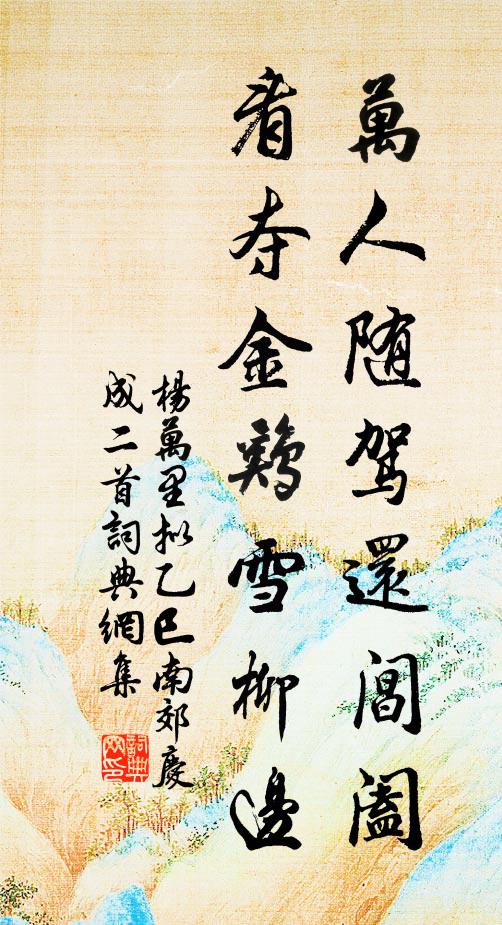 萬人随駕還閶闔
看夺金鷄雪柳邊
楊萬里拟乙巳南郊慶
成二首詞典網集
詞典
网印